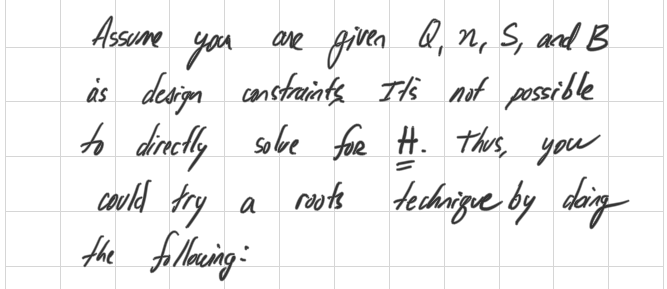 Assume you are given Q, n, S, and B
as design constraints. It's not possible
to directly solve for H. Thus, you
could try a roots technique by doing
the following: